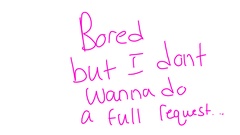 Bored
but I dont
wanna do
a full request...